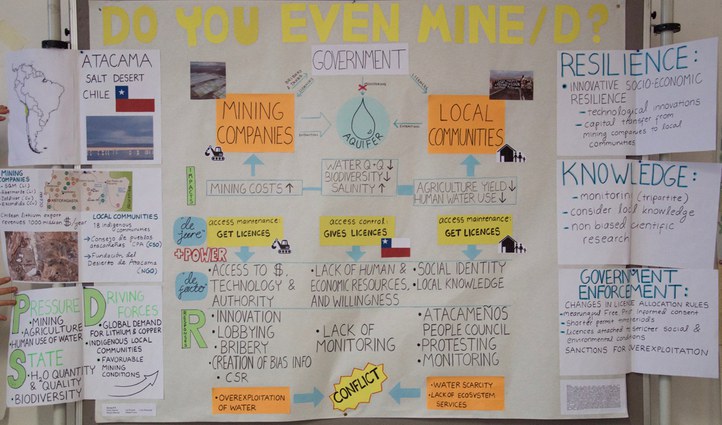 DO YOU EVEN MINE/D?
ATACAMA
SALT DESERT
CHILE
MINING
COMPANIES
- SQM
LOCAL COMMUNITIES
18 indigenous
communities
Consejo de pueblos
atacameños CPA (CSO)
Fundación del
Desierto de Atacama
(NGO)
PRESSURE
• MINING
• AGRICULTURE
• HUMAN USE OF WATER
STATE
• H₂O QUANTITY
& QUALITY
• BIODIVERSITY
DRIVING
FORCES
• GLOBAL DEMAND
FOR LITHIUM & COPPER
• INDIGENOUS LOCAL
COMMUNITIES
• FAVORABLE
MINING
CONDITIONS
GOVERNMENT
MINING
COMPANIES
AQUIFER
LOCAL
COMMUNITIES
IMPACTS
MINING COSTS ↑
WATER Q+Q ↓
BIODIVERSITY ↓
SALINITY ↑
AGRICULTURE YIELD ↓
HUMAN WATER USE ↓
de jure
access maintenance:
GET LICENCES
access control:
GIVES LICENCES
access maintenance:
GET LICENCES
+POWER
de facto
• ACCESS TO $,
TECHNOLOGY &
AUTHORITY
• LACK OF HUMAN &
ECONOMIC RESOURCES,
AND WILLINGNESS
• SOCIAL IDENTITY
• LOCAL KNOWLEDGE
R
• INNOVATION
• LOBBYING
• BRIBERY
• CREATION OF BIAS INFO
• CSR
• LACK OF
MONITORING
• ATACAMEÑOS
PEOPLE COUNCIL
• PROTESTING
• MONITORING
• OVEREXPLOITATION
OF WATER
CONFLICT
• WATER SCARCITY
• LACK OF ECOSYSTEM
SERVICES
RESILIENCE:
• INNOVATIVE SOCIO-ECONOMIC
RESILIENCE
- technological innovations
- capital transfer from
mining companies to local
communities
KNOWLEDGE:
- monitoring (tripartite)
- consider local knowledge
- non biased scientific
research
GOVERNMENT
ENFORCEMENT:
CHANGES IN LICENSE ALLOCATION RULES
• Meaningful Free Prior informed consent
• Shorter permit periods
• Licences attached to stricter social &
environmental conditions
SANCTIONS FOR OVEREXPLOITATION